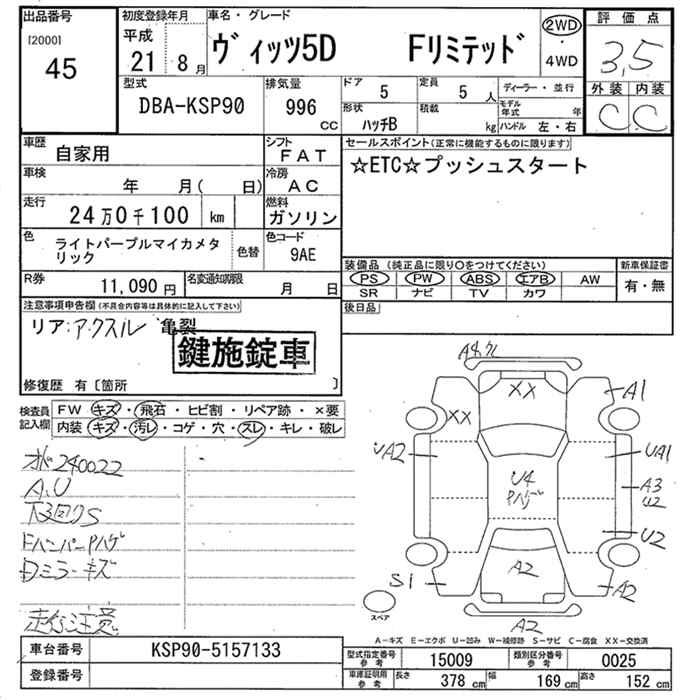 出品番号
[2000]
45
初度登録年月
平成
21 8月
車名・グレード
ヴィッツ5D Fリミテッド
2WD
・
4WD
評価点
3,5
外装 内装
C C
型式
DBA-KSP90
排気量
996 CC
ドア 5
定員 5 人
形状
ハッチB
積載 kg
ディーラー・並行
モデル年式 年
ハンドル 左・右
車歴
自家用
シフト
FAT
車検 年 月( 日)
冷房
AC
走行
24万0千100 km
燃料
ガソリン
色
ライトパープルマイカメタリック
色替
色コード
9AE
R券
11,090 円
名変通知期限
月 日
セールスポイント(正常に機能するものに限ります)
☆ETC☆プッシュスタート
装備品 (純正品に限り○をつけてください)
PS PW ABS エアB AW
SR ナビ TV カワ
新車保証書
有・無
後日品
注意事項申告欄(不具合内容等は具体的に記入して下さい)
リア:アクスル 亀裂
鍵施錠車
修復歴 有〔箇所 〕
検査員記入欄
FW キズ・飛石・ヒビ割・リペア跡・×要
内装 キズ・汚レ・コゲ・穴・スレ・キレ・破レ
240022
A.U
下回りS
FバンパーPハゲ
Dミラーキズ
走行注意
XX
XX
A1
UA2
UA1
U4
Pハゲ
A3
U2
U2
S1
A2
A2
A2
スペア
A-キズ E-エクボ U-凹み W-補修跡 S-サビ C-腐食 XX-交換済
車台番号
KSP90-5157133
登録番号
型式指定番号
参考
15009
類別区分番号
参考
0025
車庫証明用
参考
長さ 378 cm
幅 169 cm
高さ 152 cm